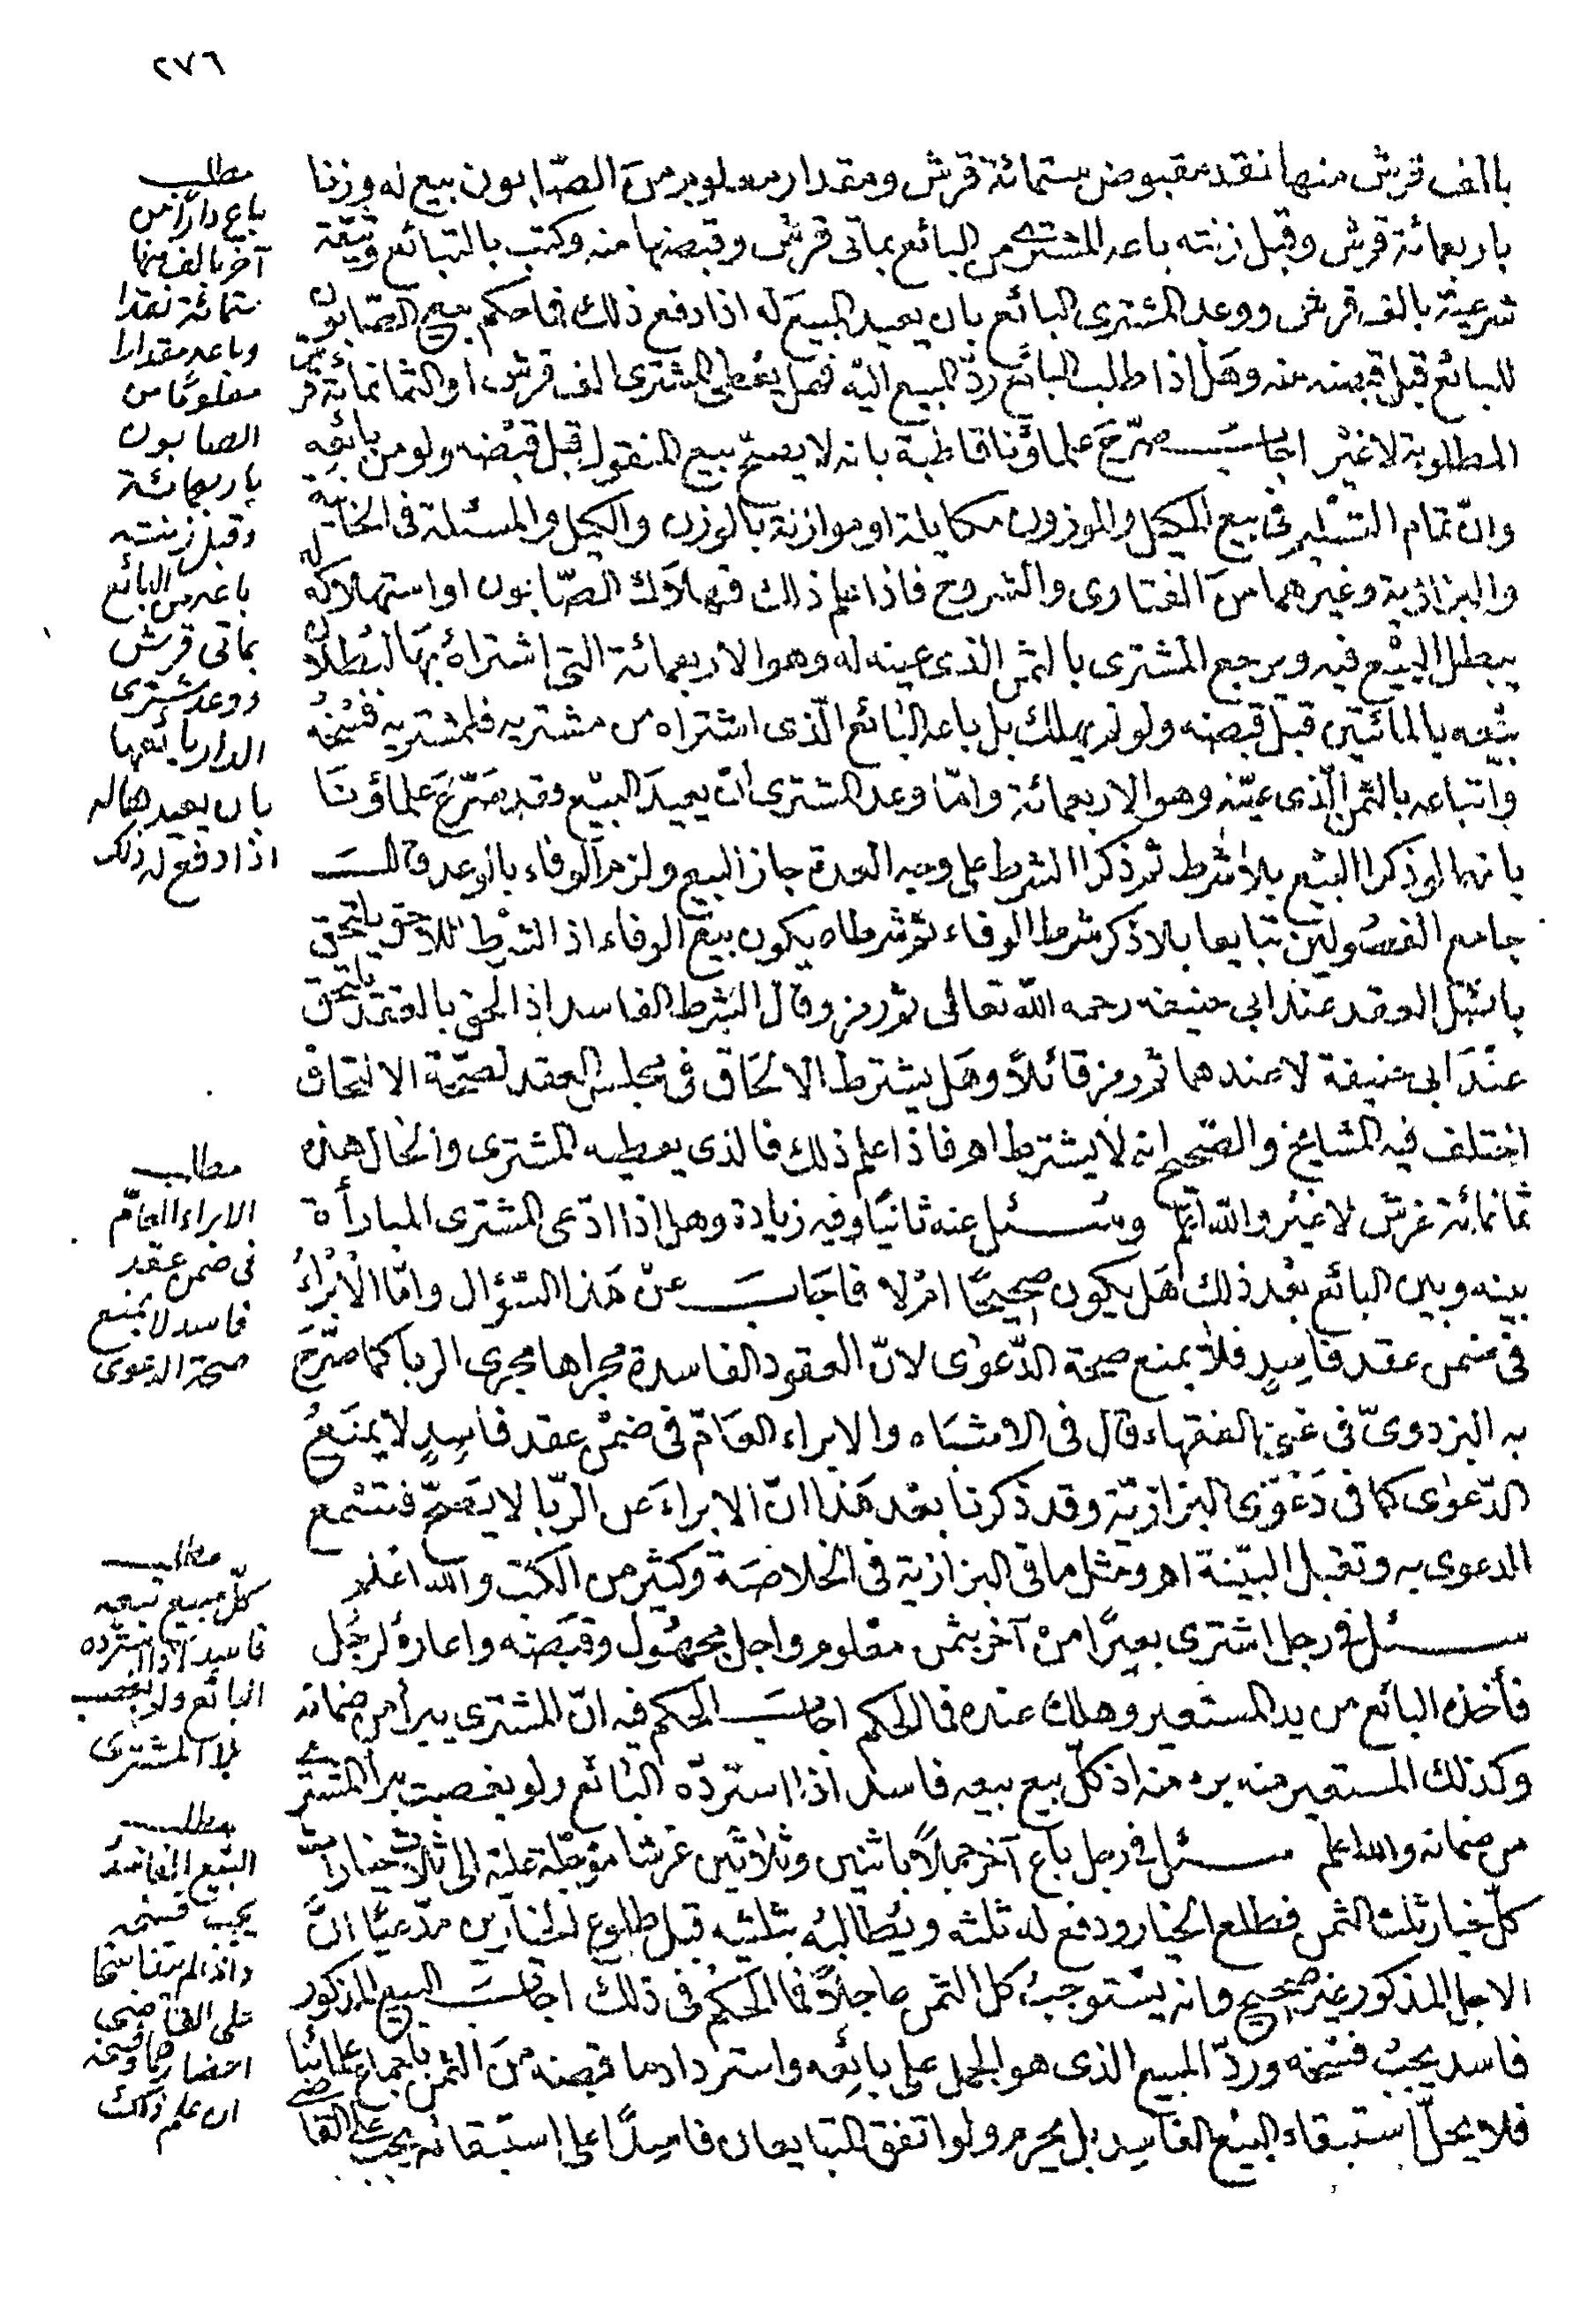 ٢٧٦
بالف قرش منها نقد مقبوض ستمائة قرش ومقدار معلوم من الصّابون بيع له وزنا
باربعمائة قرش وقبل زنته باعه المشترى من البائع بمأتى قرش وقبضها منه وكتب بالتبائع وثيقة
شرعيّة بالف قرش ووعد المشترى البائع بان يعيد المبيع له اذا دفع ذلك فما حكم بيع الصّابون
للبائع قبل قبضه منه وهل اذا طلب البائع ردّ المبيع اليه فهل يعطى المشترى الف قرش او الثمانمائة قرش
المطلوبة لا غير اجاب صرّح علماؤنا قاطبة بانه لا يصحّ بيع المنقول قبل قبضه ولو من بائعه
وانّ تمام التسليم فى بيع المكيل والموزون مكايلة او موازنة بالوزن والكيل والمسئلة فى الخانية
والبزازية وغيرهما من الفتاوى والشروح فاذا علم ذلك فهلاك الصّابون او استهلاكه
يبطل البيع فيه ويرجع المشترى بالثمن الذى عينه له وهو الاربعمائة التى اشتراه بها لبطلان
بيعه بالمائتين قبل قبضه ولو لم يهلك بل باعه البائع الّذى اشتراه من مشتريه فلمشتريه فسخه
واتباعه بالثمن الّذى عيّنه وهو الاربعمائة وامّا وعد المشترى ان يعيد البيع وقد صرّح علماؤنا
بانهما لو ذكرا البيع بلا شرط ثم ذكرا الشرط على وجه العدة جاز البيع ولزم الوفاء بالوعد قال
جامع الفصولين تبايعا بلا ذكر شرط الوفاء ثم شرطاه يكون بيع الوفاء اذ الشرط اللاحق يلتحق
باصل العقد عند ابى حنيفه رحمه الله تعالى ثم رمز وقال الشرط الفاسد اذا لحق بالعقد يلتحق
عند ابى حنيفة لا عندهما ثم رمز قائلا وهل يشترط الالحاق فى مجلس العقد لصحّة الالتحاق
اختلف فيه المشايخ والصّحيح انه لا يشترط اهـ فاذا علم ذلك فالذى يعطيه المشترى والحال هذه
ثمانمائة غرش لا غير والله اعلم وسئل عنه ثانيا وفيه زيادة وهل اذا ادّعى المشترى المبارأة
بينه وبين البائع بعد ذلك هل يكون صحيحًا ام لا فاجاب عن هذا السّؤال وامّا الابراء
فى ضمن عقد فاسدٍ فلا يمنع صحة الدّعوى لانّ العقود الفاسدة مجراها مجرى الربا كما صرّح
به البزدوىّ فى غنى الفقهاء قال فى الاشباه والابراء العامّ فى ضمن عقد فاسدٍ لا يمنع
الدّعوى كما فى دعوى البزازيّة وقد ذكرنا بعد هذا انّ الابراء عن الرّبا لا يصحّ فتسمع
الدعوى به وتقبل البيّنة اهـ ومثل ما فى البزازية فى الخلاصة وكثير من الكتب والله اعلم
سئل فى رجل اشترى بعيرًا من آخر بثمن معلوم واجل مجهول وقبضه واعاره لرجل
فأخذه البائع من يد المستعير وهلك عنده فما الحكم اجاب الحكم فيه انّ المشترى يبرأ من ضمانه
وكذلك المستعير منه برء منه اذ كلّ بيع بيعه فاسد اذا استردّه البائع ولو بغصب برأ المشترى
من ضمانه والله اعلم سئل فى رجل باع آخر جملاً باثنين وثلاثين غرشا مؤجّلة عليه الى ثلاث خيارات
كلّ خيار ثلث الثمن فطلع الخيار ودفع له ثلثه ويطالبه بثلثيه قبل طلوع الخيارين مدّعيًا انّ
الاجل المذكور غير صحيح وانه يستوجب كل الثمن عاجلاً فما الحكم فى ذلك اجاب البيع المذكور
فاسد يجب فسخه وردّ المبيع الذى هو الجمل على بائعه واسترداد ما قبضه من الثمن باجماع علمائنا
فلا يحلّ استبقاء البيع الفاسد بل يحرم ولو اتفق المتبايعان فاسدًا على استبقائه يجب على القاضى
مطلب
باع دارا من
آخر بالف منها
ستمائة نقدا
وباعه مقدارا
معلوما من
الصابون
باربعمائة
وقبل زنته
باعه من البائع
بمأتى قرش
ووعد مشترى
الدار بائعها
بان يعيدها له
اذا دفع له ذلك
مطلب
الابراء العامّ
فى ضمن عقد
فاسد لا يمنع
صحة الدعوى
مطلب
كلّ مبيع بيعه
فاسد اذا استرده
البائع ولو بغصب
برأ المشترى
مطلب
البيع الفاسد
يجب فسخه
واذا لم يتفاسخا
على القاضى
احضارهما وفسخه
ان علم ذلك